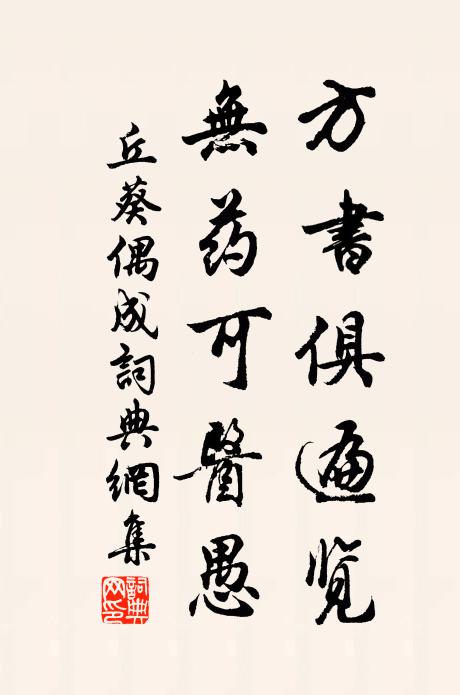 方書俱遍览
無药可醫愚
丘葵偶成詞典網集
詞典網印